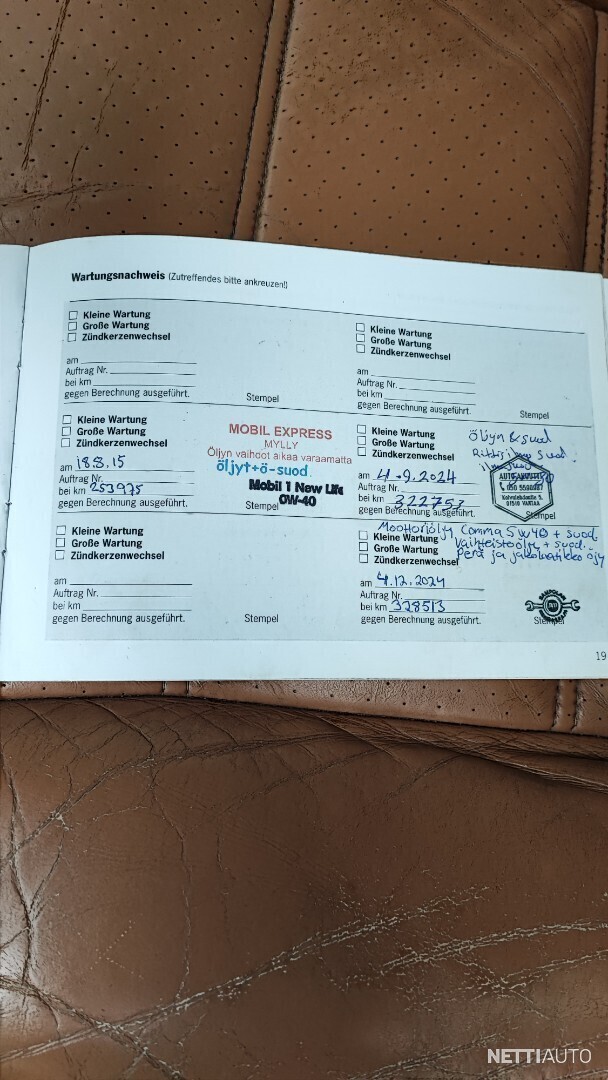 Wartungsnachweis (Zutreffendes bitte ankreuzen!)
Kleine Wartung
Große Wartung
Zündkerzenwechsel
am
Auftrag Nr.
bei km
gegen Berechnung ausgeführt.
Stempel
Kleine Wartung
Große Wartung
Zündkerzenwechsel
am
Auftrag Nr.
bei km
gegen Berechnung ausgeführt.
Stempel
Kleine Wartung
Große Wartung
Zündkerzenwechsel
am 18.5.15
Auftrag Nr.
bei km 253975
gegen Berechnung ausgeführt.
MOBIL EXPRESS
MYLLY
Öljyn vaihoot aikaa varaamatta
öljyt+ö-suod.
Mobil 1 New Life
0W-40
Stempel
Kleine Wartung
Große Wartung
Zündkerzenwechsel
am 4.9.2024
Auftrag Nr.
bei km 322753
gegen Berechnung ausgeführt.
Öljyn & suod
suod
01510 VANTAA
Stempel
Kleine Wartung
Große Wartung
Zündkerzenwechsel
am
Auftrag Nr.
bei km
gegen Berechnung ausgeführt.
Stempel
Moottoriöljy Comma 5W40 + suod.
Vaihteistoöljy + suod.
Perä ja jakolaatikko öljy
Kleine Wartung
Große Wartung
Zündkerzenwechsel
am 4.12.2024
Auftrag Nr.
bei km 328513
gegen Berechnung ausgeführt.
Stempel
19
NETTIAUTO